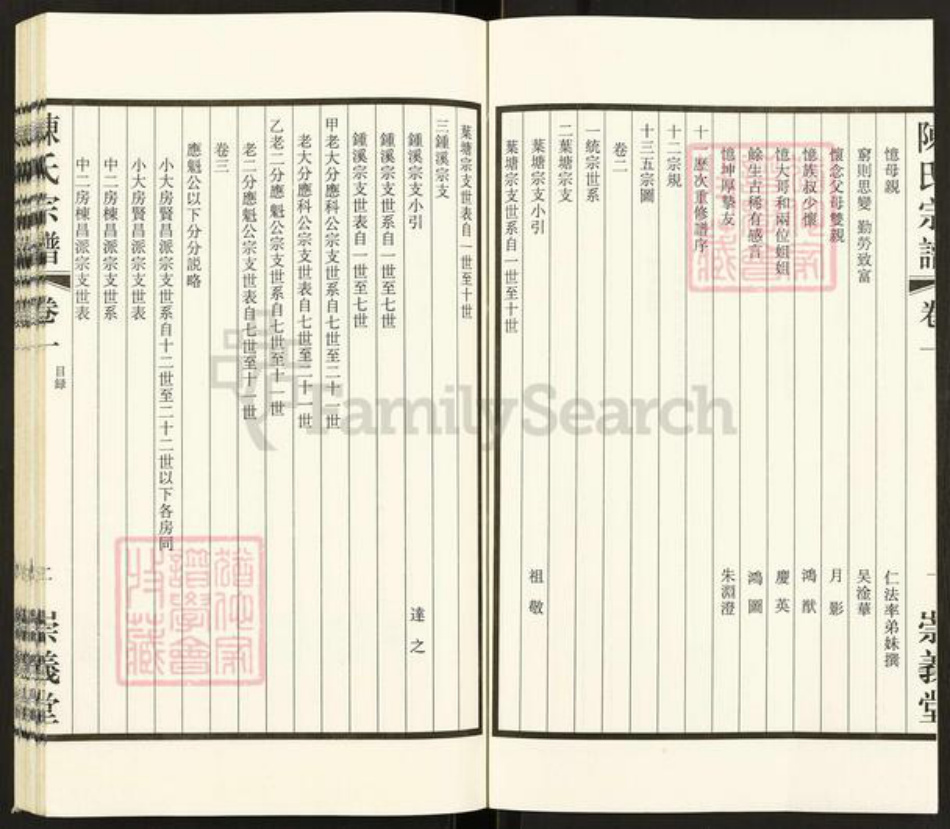 陳氏宗譜 卷一
崇義堂
憶母親 仁法率弟妹撰
窮則思變 勤勞致富 吴淦華
懷念父母雙親 月影
憶族叔少懷 鴻猷
憶大哥和兩位姐姐 慶英
餘生古稀有感言 鴻圖
憶坤厚摯友 朱淵澄
十一歷次重修譜序
十二宗規
十三五宗圖
卷二
一統宗世系
二葉塘宗支
葉塘宗支小引 祖敬
葉塘宗支世系自一世至十世
葉塘宗支世表自一世至十世
三鍾溪宗支
鍾溪宗支小引 達之
鍾溪宗支世系自一世至七世
鍾溪宗支世表自一世至七世
甲老大分應科公宗支世系自七世至二十一世
老大分應科公宗支世表自七世至二十一世
乙老二分應魁公宗支世系自七世至十一世
老二分應魁公宗支世表自七世至十一世
卷三
應魁公以下分分説略
小大房賢昌派宗支世系自十二世至二十二世以下各房同
小大房賢昌派宗支世表
中二房棟昌派宗支世系
中二房棟昌派宗支世表
陳氏宗譜 卷一 目録 二 崇義堂
FamilySearch